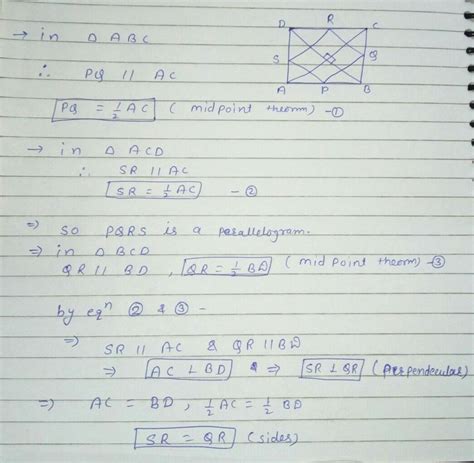 → in Δ ABC
∴ PQ || AC
PQ = 1/2 AC ( midpoint theorm ) -①
D R C
S Q
A P B
→ in Δ ACD
∴ SR || AC
SR = 1/2 AC -②
⇒ SO PQRS is a parallelogram.
⇒ in Δ BCD
QR || BD, QR = 1/2 BD ( mid point theorm ) -③
by eqⁿ ② & ③ -
⇒ SR || AC & QR || BD
⇒ AC ⊥ BD ⇒ SR ⊥ QR ( perpendecular )
⇒ AC = BD , 1/2 AC = 1/2 BD
SR = QR (sides)